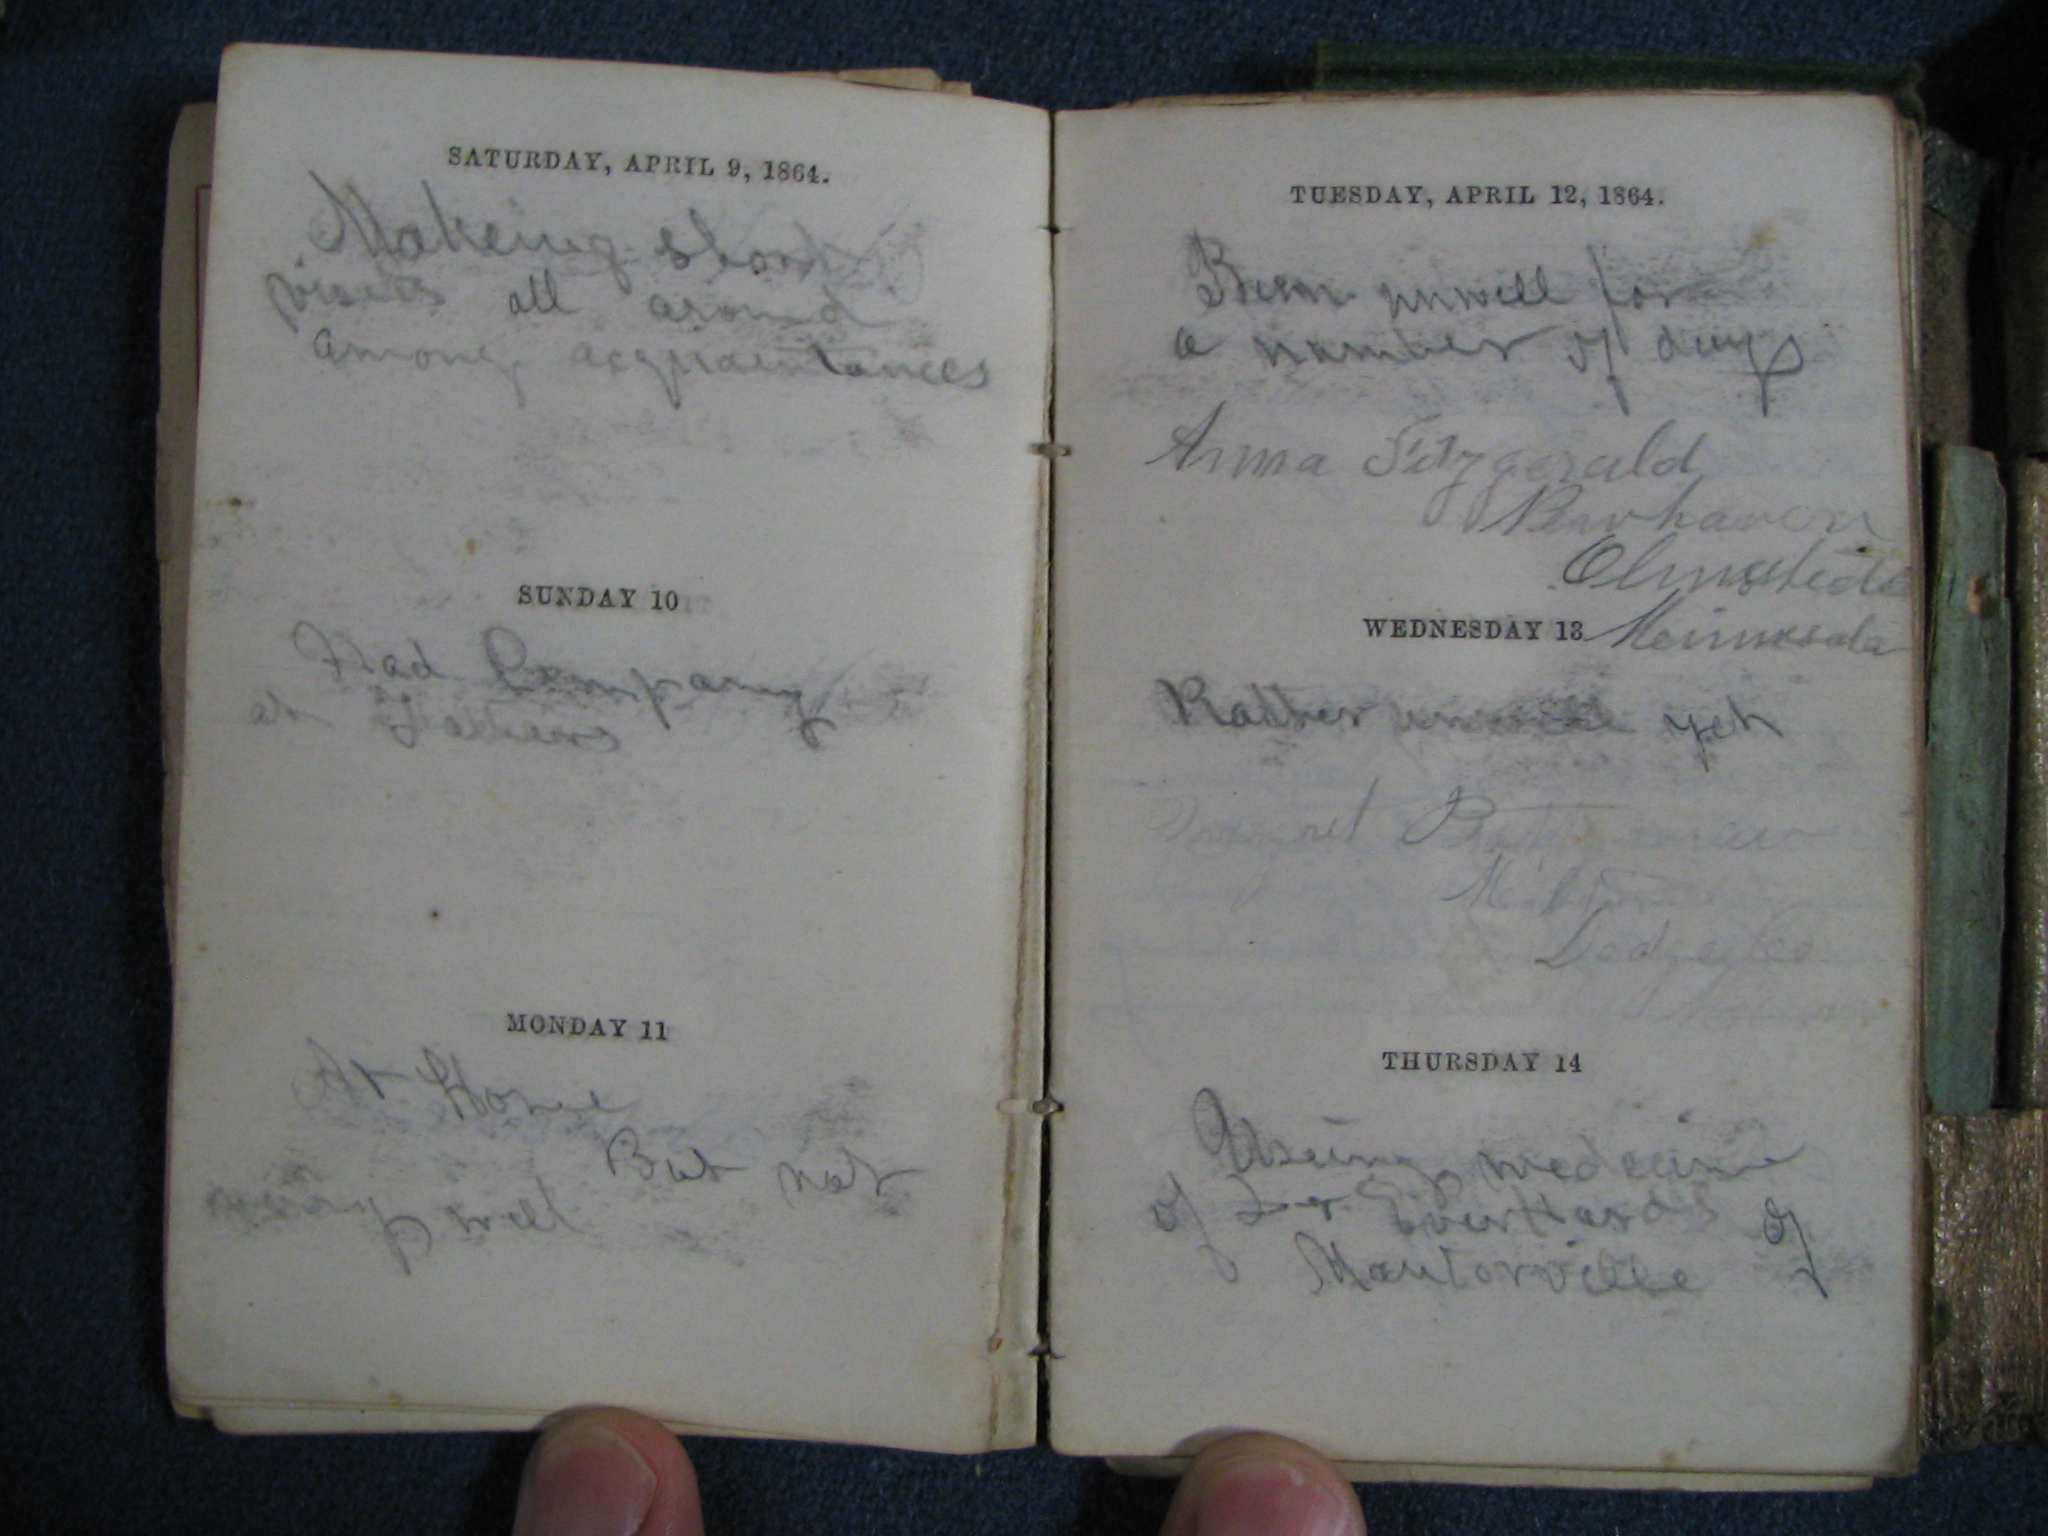 SATURDAY, APRIL 9, 1864.
Makeing short
visits all around
among acquaintances
SUNDAY 10
Had Company
at Fathers
MONDAY 11
At Home
But not
very well
TUESDAY, APRIL 12, 1864.
Been unwell for
a number of days
Anna Fitzgerald
Olmsted
WEDNESDAY 13
Rather unwell yet
Dodge Co
THURSDAY 14
Useing medecine
of Dr EverHards of
Mantorville